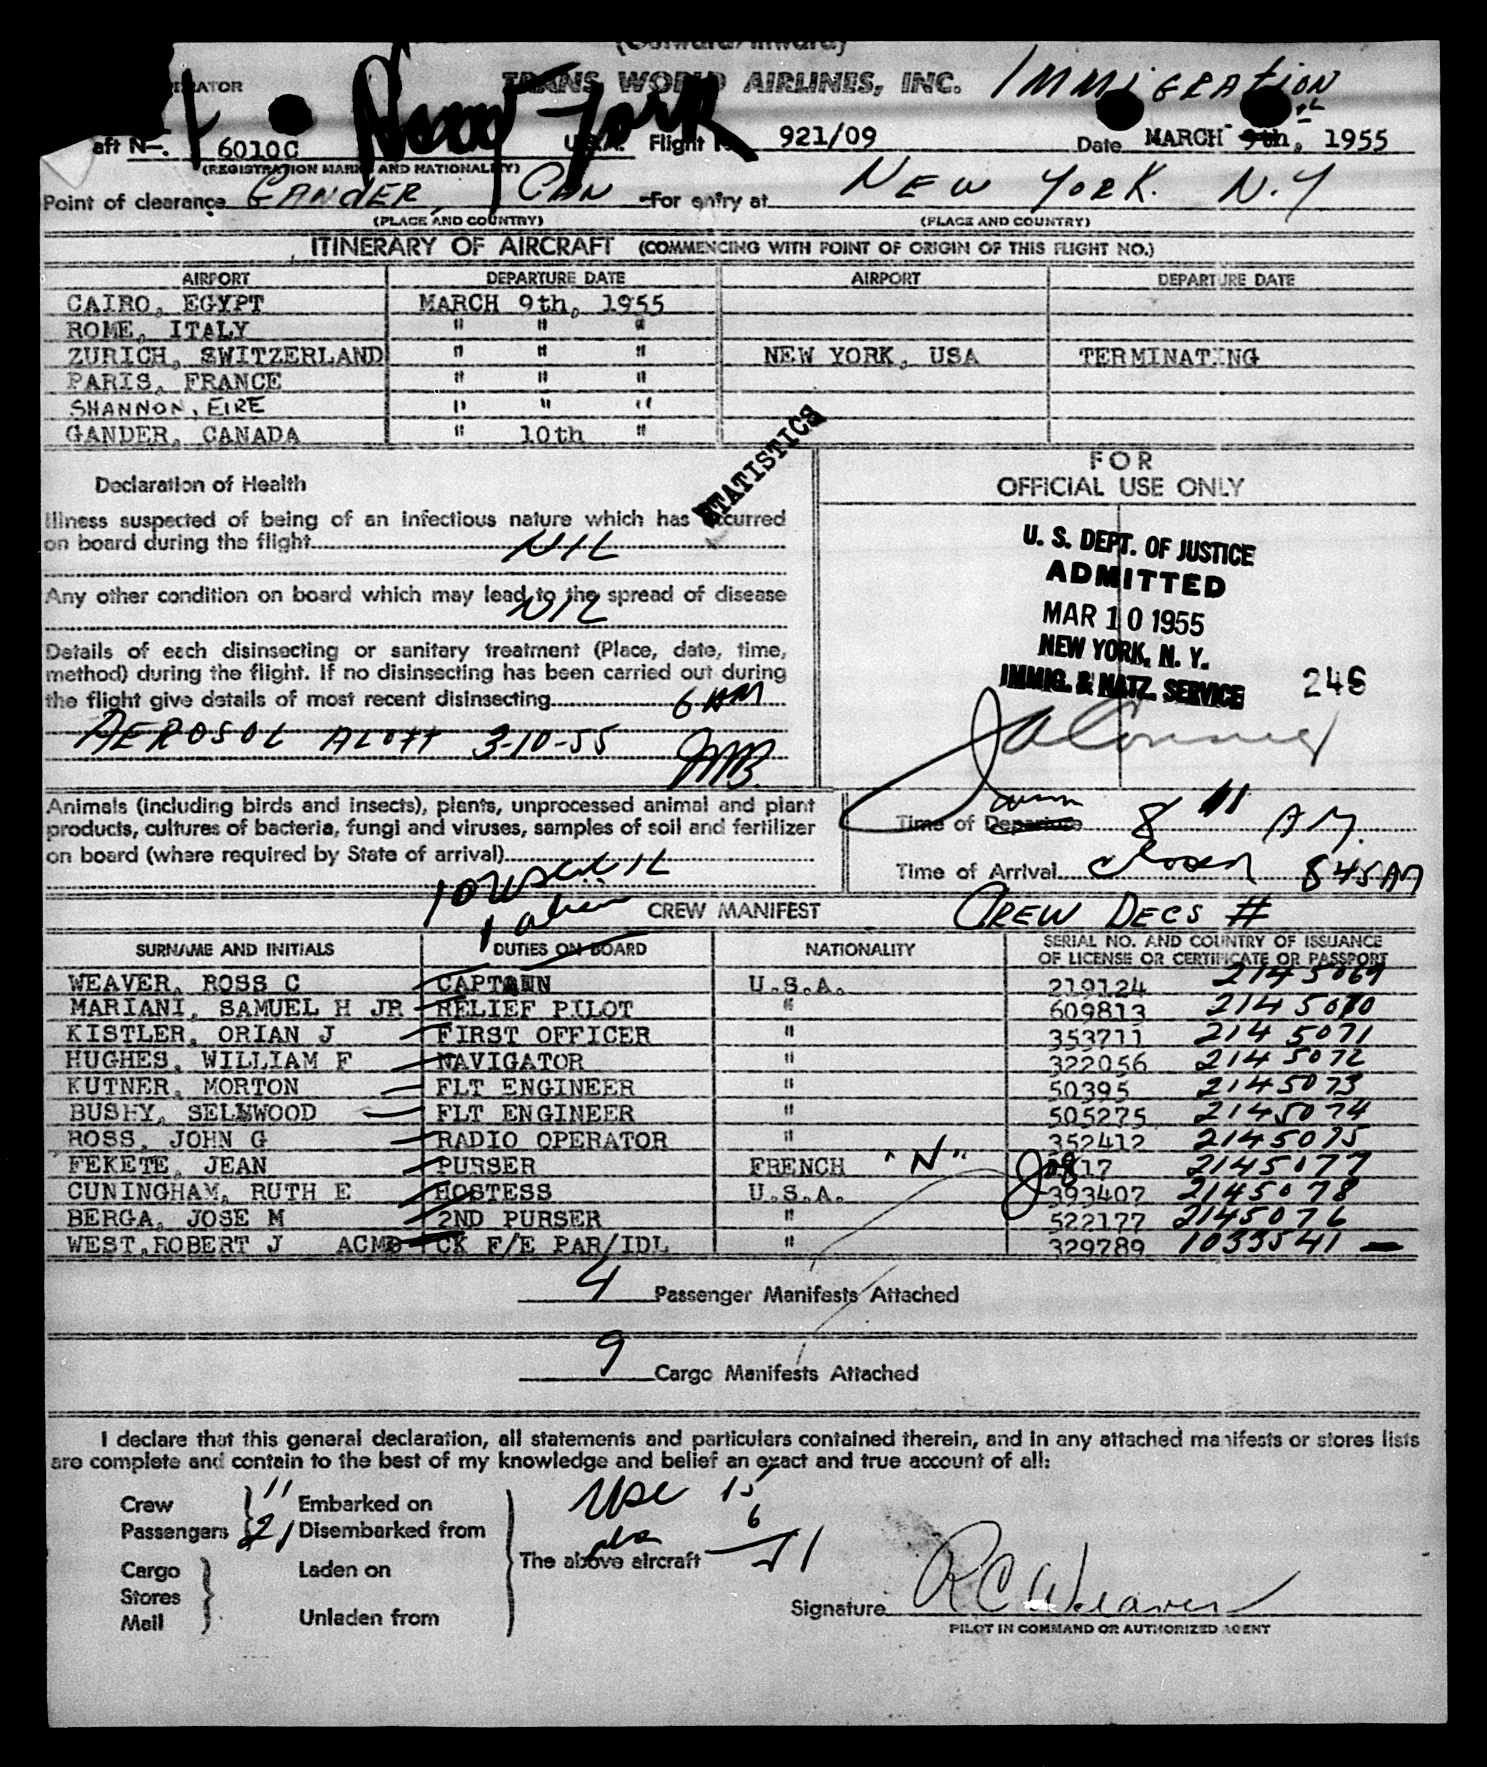 (Outward/Inward)
TRANS WORLD AIRLINES, INC. IMMIGRATION
New York
aft No. 6010C U.S.A. Flight No. 921/09 Date MARCH 9th, 1955
(REGISTRATION MARKS AND NATIONALITY)
Point of clearance GANDER, CAN For entry at NEW YORK. N.Y
(PLACE AND COUNTRY) (PLACE AND COUNTRY)
ITINERARY OF AIRCRAFT (COMMENCING WITH POINT OF ORIGIN OF THIS FLIGHT NO.)
AIRPORT DEPARTURE DATE AIRPORT DEPARTURE DATE
CAIRO, EGYPT MARCH 9th, 1955
ROME, ITALY " " "
ZURICH, SWITZERLAND " " " NEW YORK, USA TERMINATING
PARIS, FRANCE " " "
SHANNON, EIRE " " "
GANDER, CANADA " 10th "
STATISTICS
FOR
OFFICIAL USE ONLY
Declaration of Health
Illness suspected of being of an infectious nature which has occurred
on board during the flight NIL
Any other condition on board which may lead to the spread of disease
NIL
Details of each disinsecting or sanitary treatment (Place, date, time,
method) during the flight. If no disinsecting has been carried out during
the flight give details of most recent disinsecting 6 AM
AEROSOL ALOFT 3-10-55
U. S. DEPT. OF JUSTICE
ADMITTED
MAR 10 1955
NEW YORK, N. Y.
IMMIG. & NATZ. SERVICE 246
Animals (including birds and insects), plants, unprocessed animal and plant
products, cultures of bacteria, fungi and viruses, samples of soil and fertilizer
on board (where required by State of arrival) NIL
Time of Departure 8 11 AM.
Time of Arrival closed 845 AM
10 USC
1 alien CREW MANIFEST CREW DECS #
SURNAME AND INITIALS DUTIES ON BOARD NATIONALITY SERIAL NO. AND COUNTRY OF ISSUANCE
OF LICENSE OR CERTIFICATE OR PASSPORT
WEAVER, ROSS C CAPTAIN U.S.A. 219124 2145069
MARIANI, SAMUEL H JR RELIEF PILOT " 609813 2145070
KISTLER, ORIAN J FIRST OFFICER " 353711 2145071
HUGHES, WILLIAM F NAVIGATOR " 322056 2145072
KUTNER, MORTON FLT ENGINEER " 50395 2145073
BUSHY, SELLWOOD FLT ENGINEER " 505275 2145074
ROSS, JOHN G RADIO OPERATOR " 352412 2145075
FEKETE, JEAN PURSER FRENCH "N" 2145077
CUNINGHAM, RUTH E HOSTESS U.S.A. 393407 2145078
BERGA, JOSE M 2ND PURSER " 522177 2145076
WEST, ROBERT J ACM CK F/E PAR/IDL " 329789 1033541
4 Passenger Manifests Attached
9 Cargo Manifests Attached
I declare that this general declaration, all statements and particulars contained therein, and in any attached manifests or stores lists
are complete and contain to the best of my knowledge and belief an exact and true account of all:
Crew 11 Embarked on
Passengers 21 Disembarked from
Cargo Laden on
Stores
Mail Unladen from
USC 15
6
The above aircraft
Signature R C Weaver
PILOT IN COMMAND OR AUTHORIZED AGENT